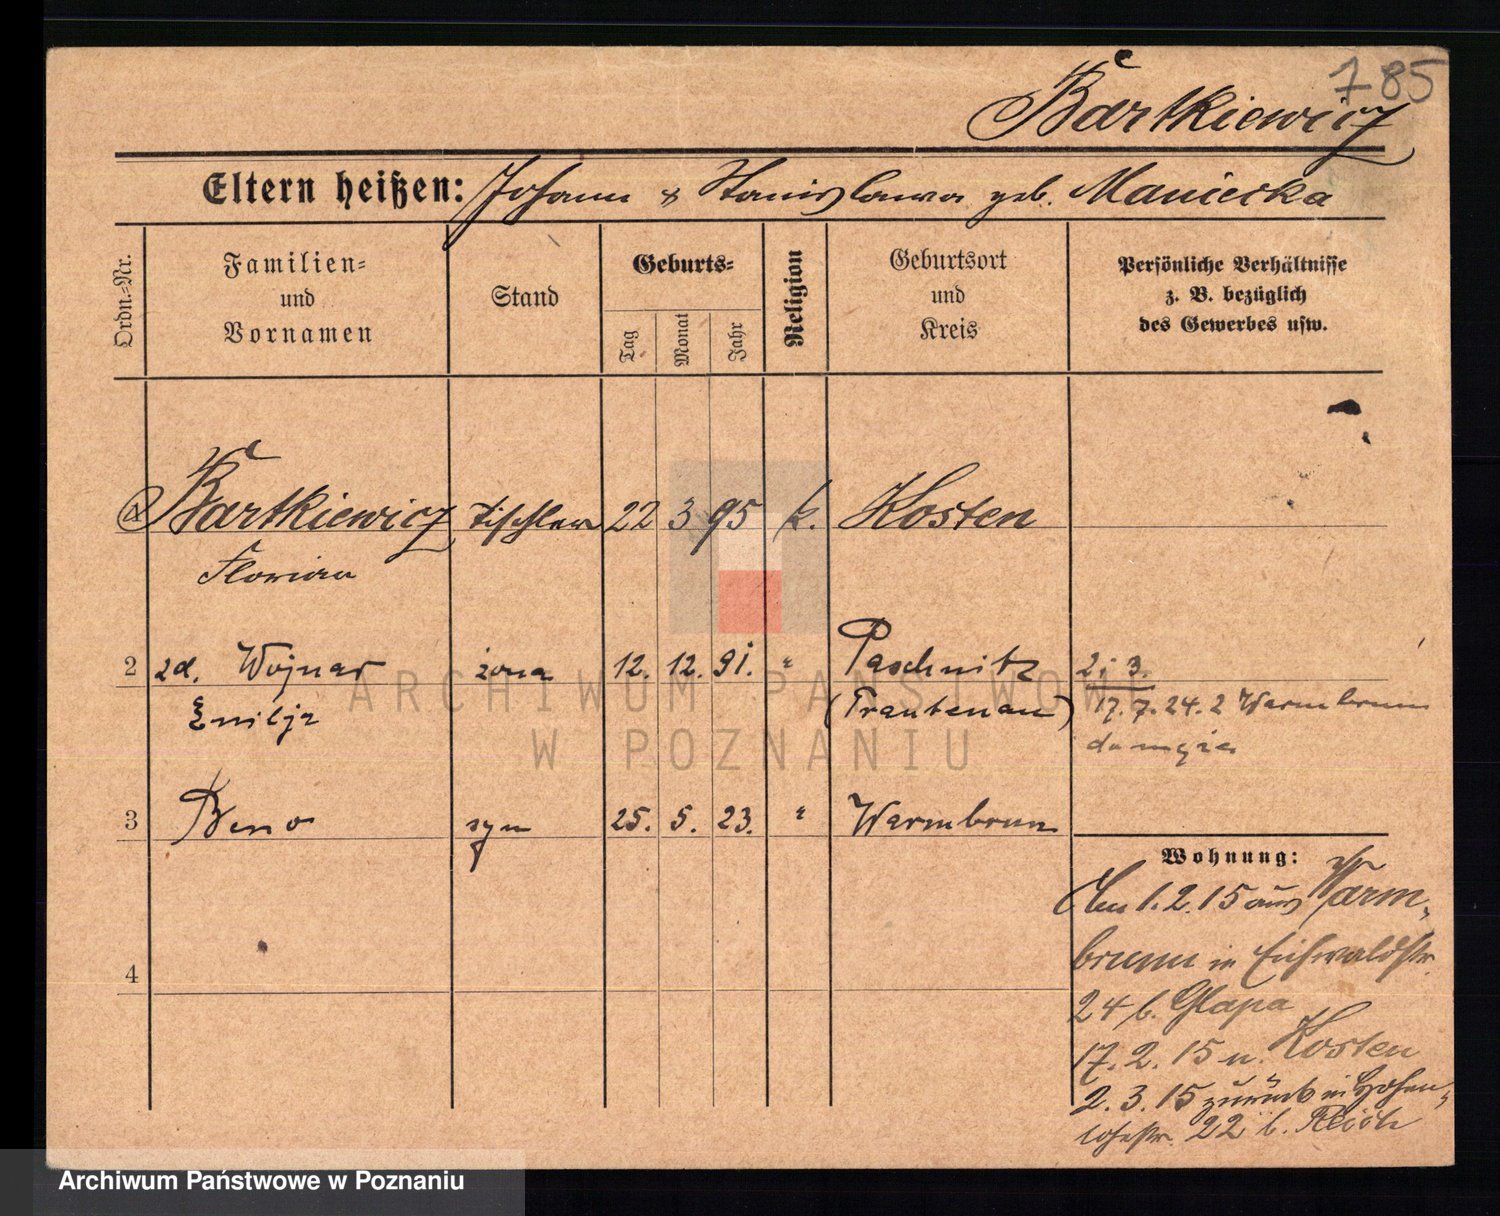 785
Bartkiewicz
Eltern heißen: Johann & Stanislawa geb. Maniecka
Ordn.-Nr.
Familien-
und
Vornamen
Stand
Geburts-
Tag
Monat
Jahr
Religion
Geburtsort
und
Kreis
Persönliche Verhältnisse
z. B. bezüglich
des Gewerbes usw.
Bartkiewicz Tischler 22 3 95 k. Kosten
Florian
2 zd. Wojnar żona 12. 12. 91. " Paschnitz 2 i 3.
Emilja (Trautenau) 17.7.24. z Warmbrunn
3 Beno syn 25. 5. 23. " Warmbrunn
Wohnung:
Am 1.2.15 aus Warm-
brunn in Eichwaldstr.
24 b. Glapa
4
17.2.15 n. Kosten
2.3.15 zurück in Hohen-
lohestr. 22 b. Reich
ARCHIWUM PAŃSTWOWE
W POZNANIU
Archiwum Państwowe w Poznaniu